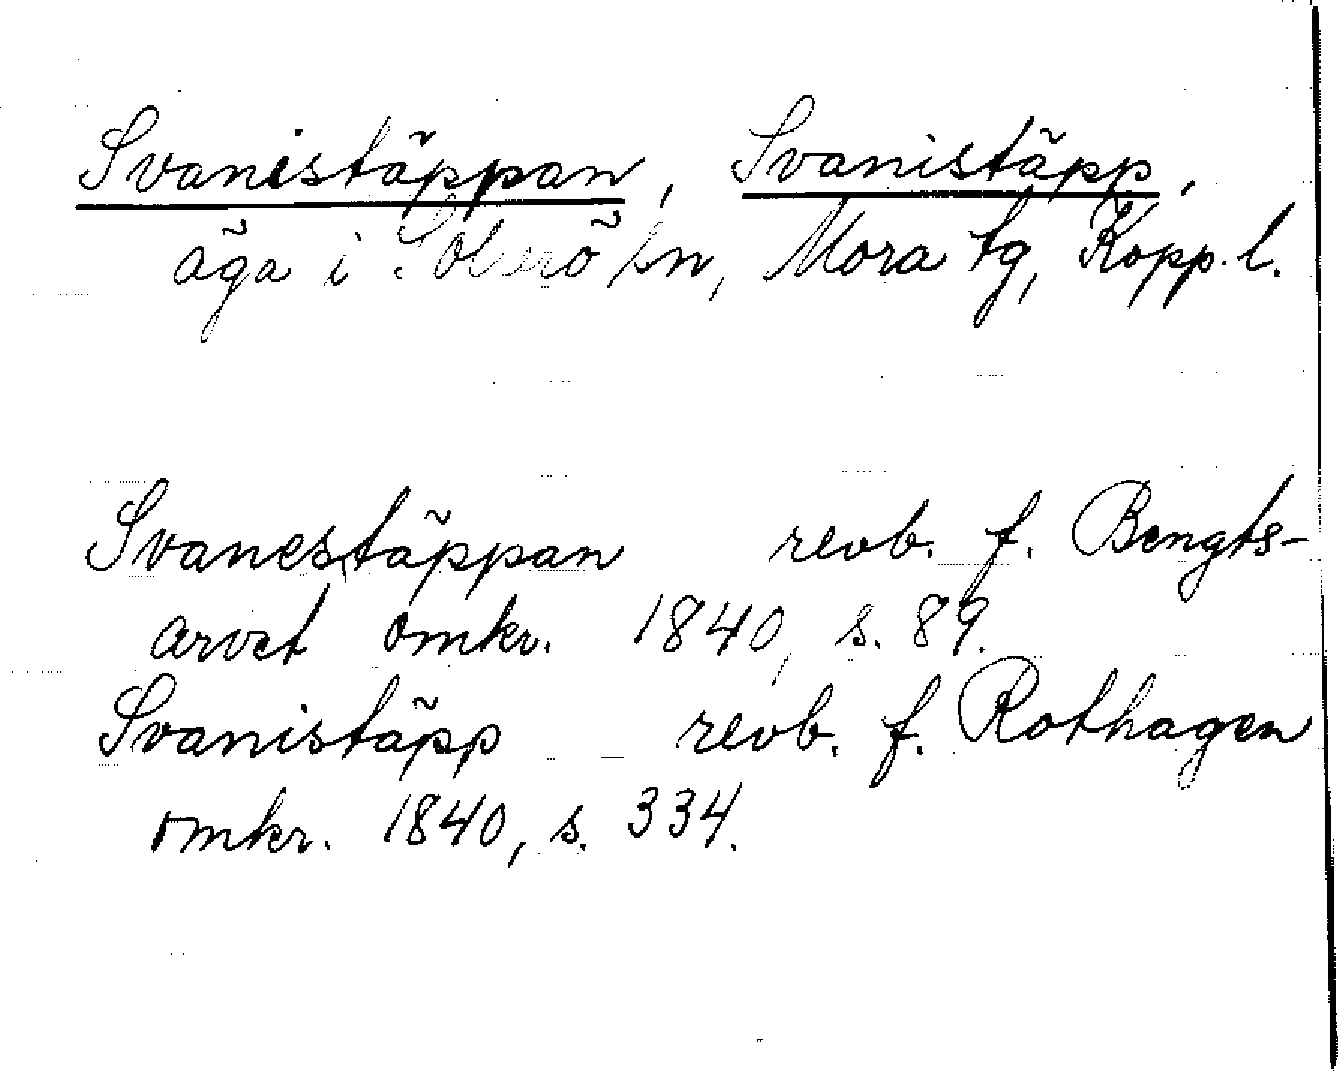 Svanistäppan, Svanistäpp,
äga i Sollerö sn, Mora tg, Kopp. l.
Svanestäppan revb. f. Bengts-
arvet omkr. 1840, s. 89.
Svanistäpp revb. f. Rothagen
omkr. 1840, s. 334.